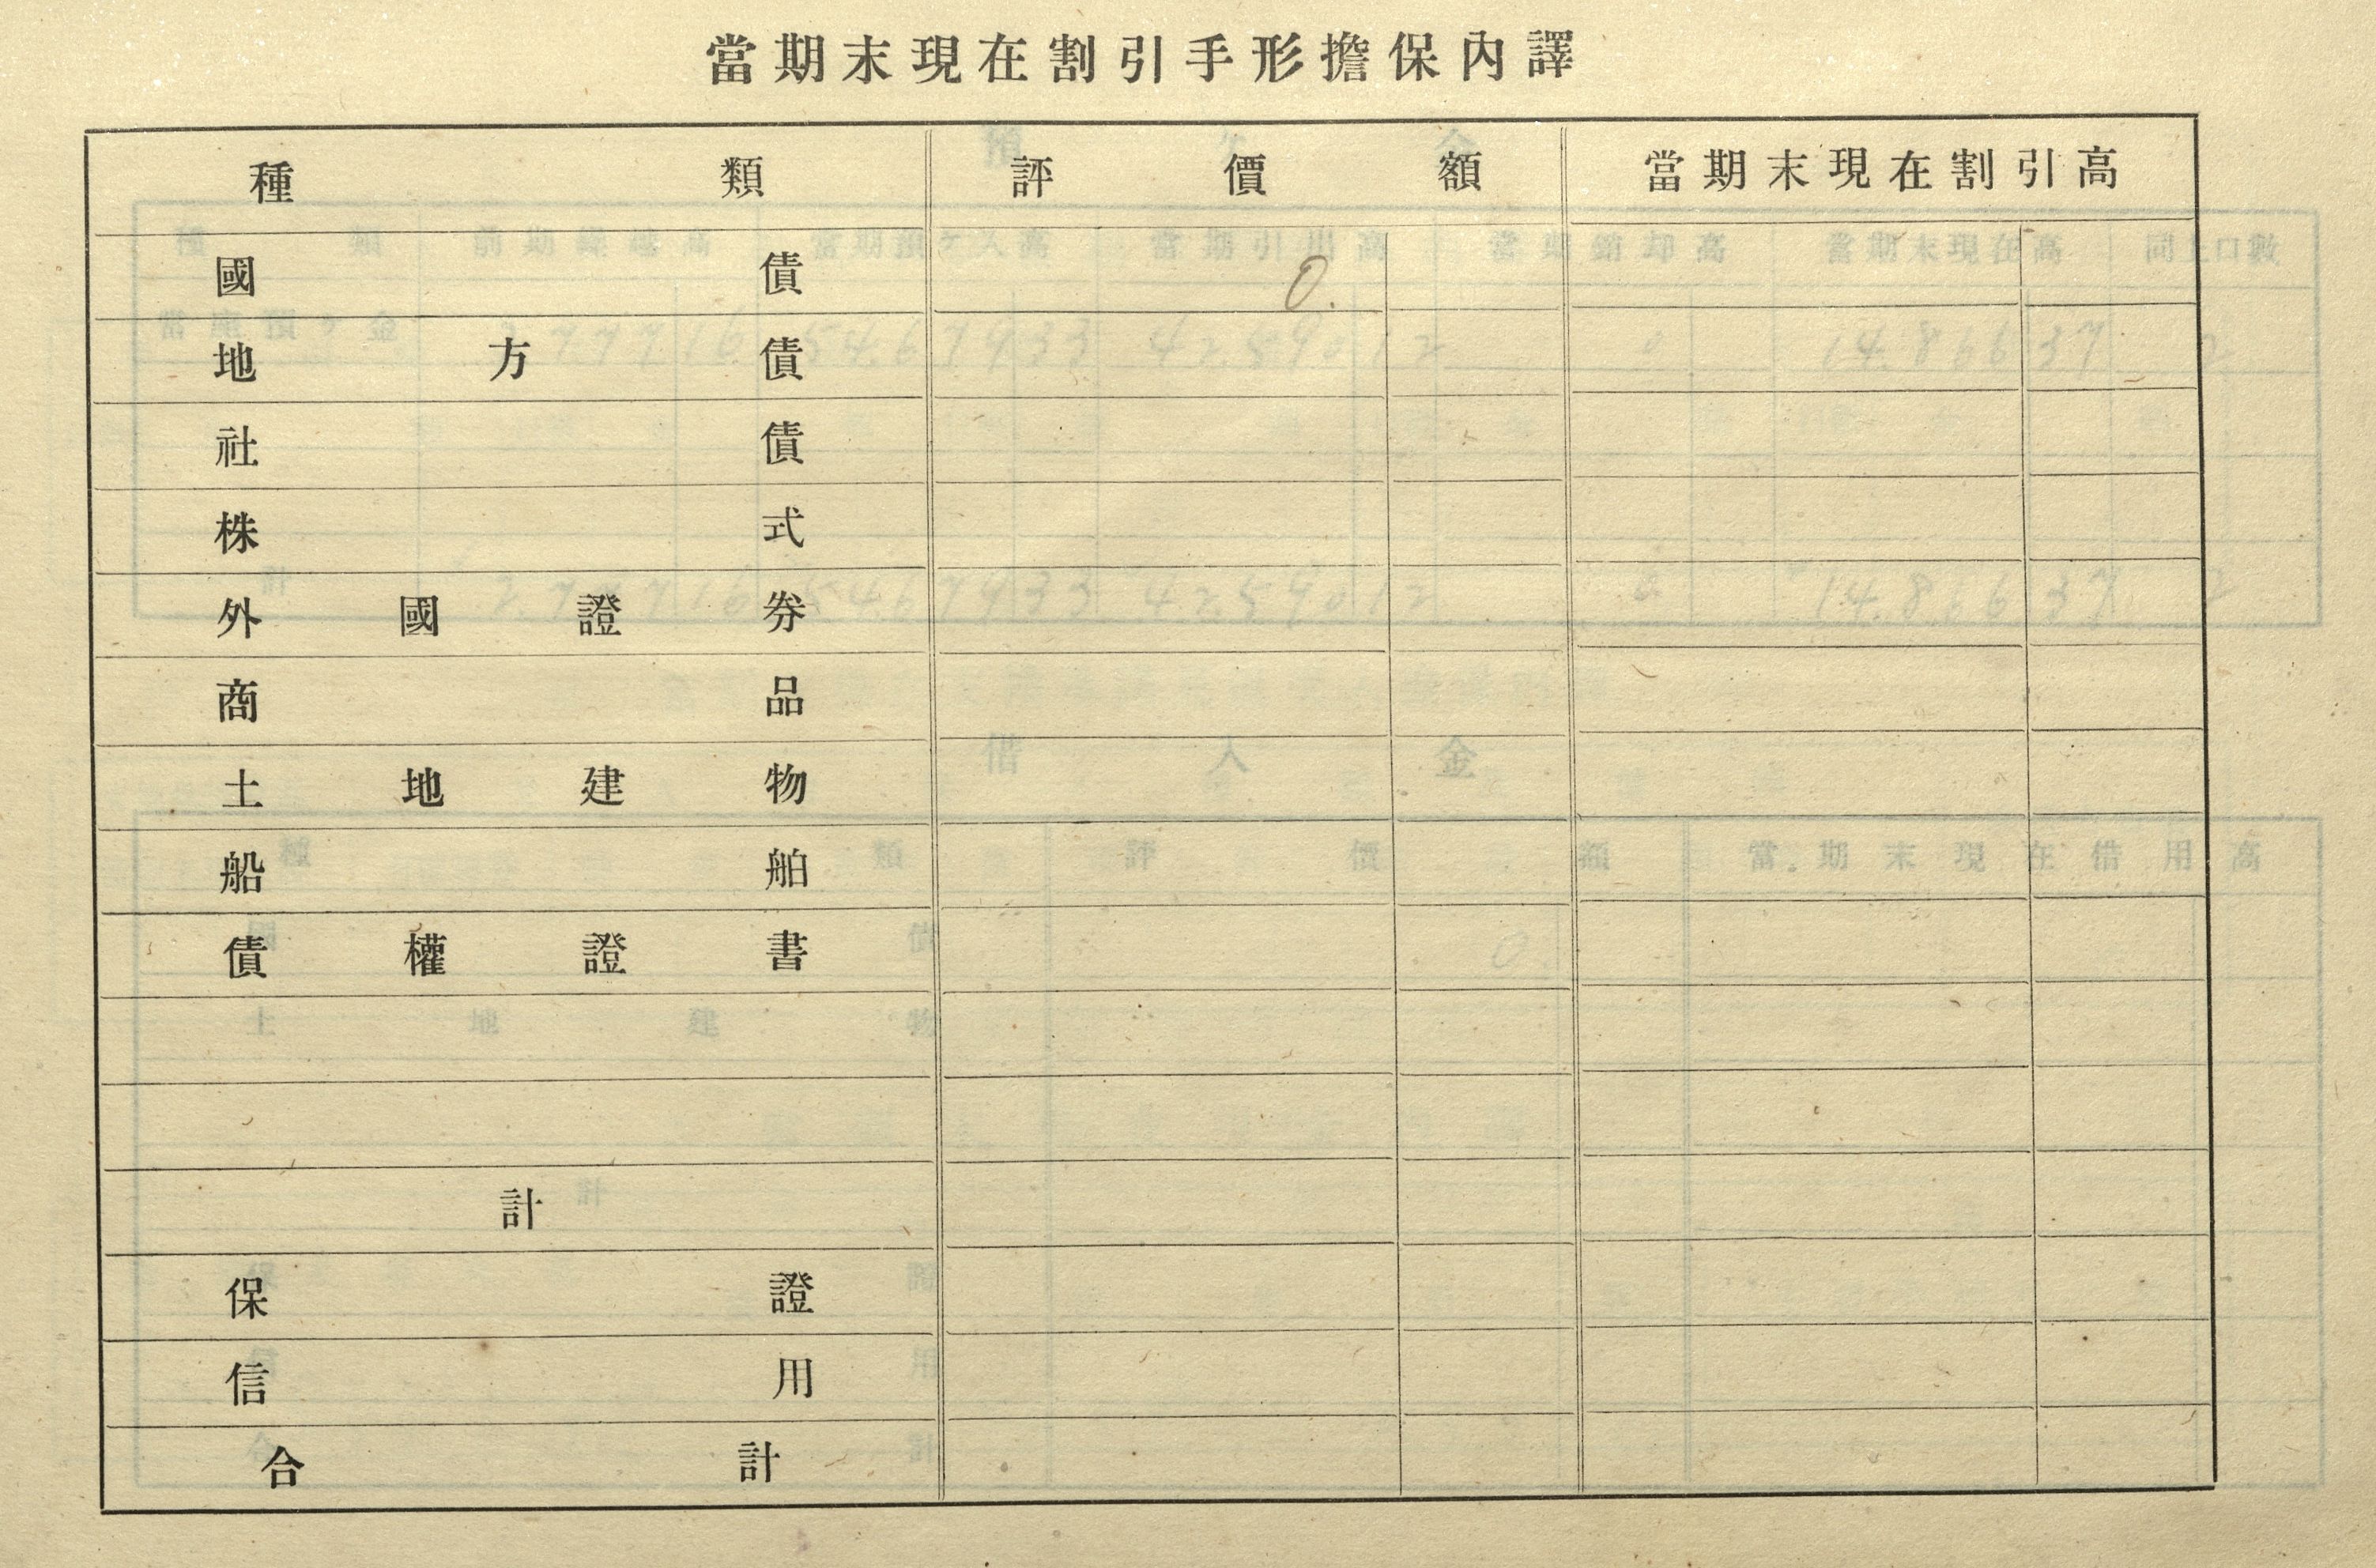 當期末現在割引手形擔保內譯
種類 評價額 當期末現在割引高
國債 0.
地方債
社債
株式
外國證券
商品
土地建物
船舶
債權證書
計
保證
信用
合計